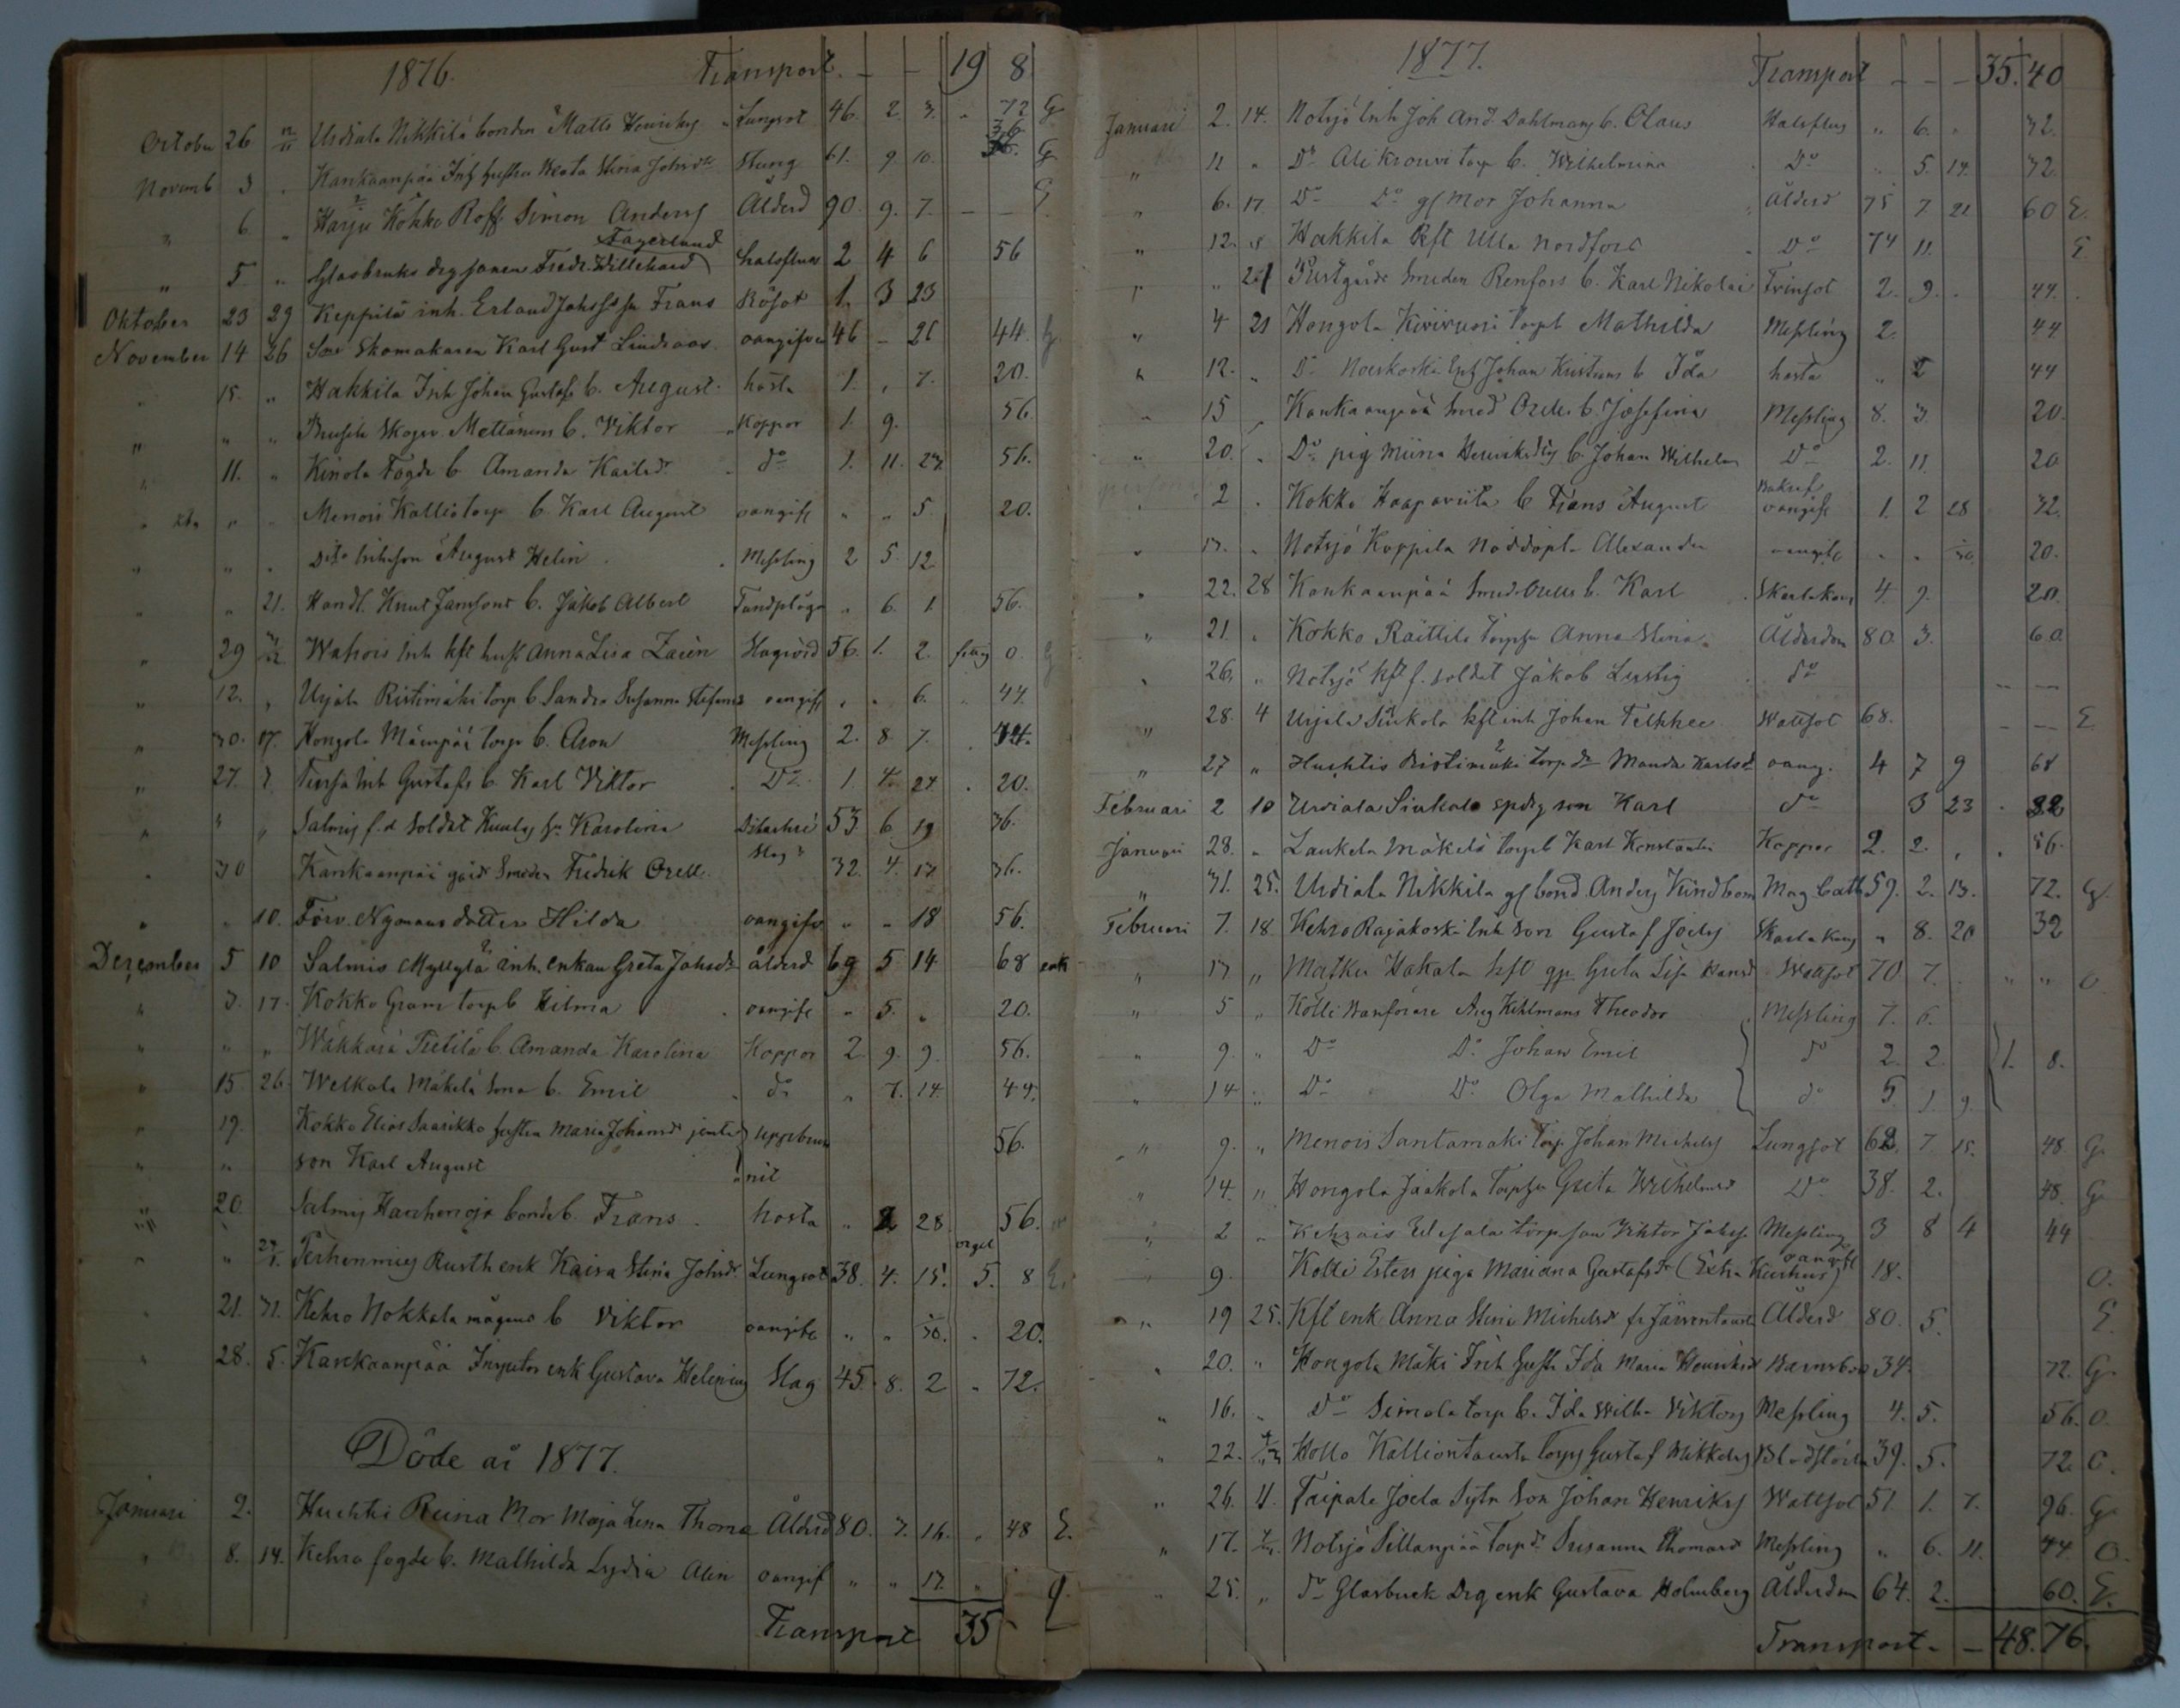 1876. Transport. — — 19 8
October 26 Urdiala Nikkilä bonden Matts Henriks Lungsot 46. 2. 3. " 72 G
Novemb 3 " Kankaanpää Inh hustru Beata Stina Johsdr Slung 61. 9. 10. 36. G
" 6 " Harju Kökko Simon Anders Ålderd 90. 9. 7. — — G.
Fagerlund
" 5 " Glasbruks drg sonen Fredr. Willehard halsfluss 2 4 6 56
Oktober 23 29 Keppilä inh. Erland Johss sn Frans Rösot 1. 3 23
November 14 26 Skomakaren Karl Gust Lindroos oangifven 46 — 26 44. G.
" 15. " Hakkila Inh Johan Gustafs b. August. hosta 1. , 7. 20.
" " " Skogv. Mettänens b. Viktor " Koppor 1. 9. 56.
" 11. " Kinola Fogde b Amanda Karlsdr do 1. 11. 27. 56.
" " " Menois Kalliotorp b. Karl August oangift " " 5. 20.
" " " Dito August Helin Messling 2 5. 12.
" " 21. Handl. Knut Jansons b. Jakob Albert Tandplåga " 6. 1. 56.
" 29 Wahois Inh kft hust Anna Lisa Zarin Slagvörd 56. 1. 2. 0. G
" 12. " Urjala Ristimäki torp b. Sandra Susanna Stefans oangift , . 6. 44.
" 30. 17. Hongola Mäenpää torp b. Aron Messling 2. 8. 7. 44.
" 27. " Inh Gustafs b. Karl Viktor Do 1. 4. 27. 20.
" " " Salmis f.d Soldat hu Karolina 53. 6. 19 36.
" 30 Kankaanpää gård Smeden Fredrik Orell. Slag 32. 4. 17. 36.
" " 10. Förv. Nymans dotter Hilda oangifv " " 18 56.
December 5 10 Salmis Myllylä inh. enkan Greta Johsdr ålderd 69 5 14 68 enk
" 3. 17. Kokko Gram torp b Hilma oangift " 5. " 20.
" " " Wäkkärä Tietilä b Amanda Karolina Koppor 2. 9. 9. 56.
" 15. 26. Welkala Mäkelä Sona b. Emil do " 7. 14. 44.
" 19. Kokko Elias Saarikko hustru Maria Johansdr jemte uppbrun
" " son Karl August nit 56.
" 20. Salmis Hanhenoja bonde b. Frans hosta " 2 28. 56.
" " Perhonmies Rusth enk Kaisa Stina Johsdr Lungsot 38. 4. 15. orgel 5. 8 E.
" 21. 31. Kehro Nokkala mågens b Viktor oangift " " 1/30. 20.
" 28. 5. Kankaanpää Inspektor enk Gustava Helenius Slag 45. 8. 2 " 72.
Döde år 1877.
Januari 2. Huchti Reina Mor Maja Lena Thoma Ålderd 80. 7. 16. " 48 E.
" 8. 14. Kehro fogde b. Mathilda Lydia Alin oangif " " 17. " g.
Transport 35
1877. Transport — — — 35.40
Januari 2. 14. Notsjö Inh Joh And. Dahlmans b. Claus Halsfluss " 6. " 32.
" 11 " Do Alikrouvi torp b. Wilhelmina Do " 5. 14. 32.
" 6. 17 Do Do gl Mor Johanna Ålderd 75 7 21 60 E.
" 12. " Hakkila kft Ulla Nordfors Do 74 11. E.
" " 21 Prestgårds Smeden Renfors b. Karl Nikolai Trinsot 2. 9. . 44.
" 4 21 Hongola Kivivuori torp b Mathilda Messling 2. 44
" 12. " Do Naskoski Inh Johan Kustuns b Ida hosta " 2 44
" 15 " Kankaanpää Smed Orells b. Josefina Messling 8. 3. 20.
" 20. " Do pig Miina Henriksdrs b. Johan Wilhelm Do 2. 11. 20
" 2 " Kokko Haapaviita b Frans August oangift 1. 2 28 32.
" 13. " Notsjö Koppila Nöddöpta Alexander oangift " " 20.
" 22. 28 Kankaanpää Smed Orells b. Karl Skarlakans 4. 9. 20.
" 21. " Kokko Raittila torpsk Anna Stina Ålderdom 80. 3. 60.
" 26. " Notsjö kft f. soldat Jakob Lustig do — —
" 28. 4 Urjala Siukola kft inh Johan Telkkee Wattsot 68. — — E.
" 27 " Huchtis Ristimäki torp dr Manda Karlsdr oang. 4 7 9 68
Februari 2 10 Urdiala Siukola spdrg son Karl do 3 23 32
Januari 28. " Laukela Mäkelä torp b Karl Konstantin Koppor 2. 2. , . 56.
" 31. 25. Urdiala Nikkila gl bond Anders Kindbom Mag Cath 59. 2. 13. 72. G.
Februari 7. 18. Kehro Rajakoski Inh Son Gustaf Joels Skarlakans " 8. 20 32
" 13 " Matku Hakala kft gp Greta Lisa Wattsot 70. 7. " " O.
" 5 " Kolli Banförare Aug Kihlmans Theodor Messling 7. 6.
" 9. " Do Do Johan Emil do 2. 2. 1. 8.
" 14 " Do Do Olga Mathilda do 5 1. 9.
" 9. " Menois Santamäki Torp Johan Michels Lungsot 62. 7. 15. 48 G.
" 14. " Hongola Jaakola Torpsk Greta Wilhelmsd Do 38. 2. 48. G
" 2 " Kehrois Edesala torp son Viktor Johss Messling 3 8 4 44
" 9. Kolli Esters piga Mariana Gustafsdr (Eeka Kushus) oangift 18. O.
" 19 25. Kft enk Anna Stina Michelsd fr Järventausta Ålderd 80. 5. E.
" 20. " Hongola Mäki Inh hustr Ida Maria Henriksd Barnsbörd 34. 72. G.
" 16. " Do Simola torp b. Ida Wilh. Viktors Messling 4. 5. 56. O.
" 22. Kollo Kalliontausta torp Gustaf Mikkels Blodstört 39. 5. 72. O.
" 26. 11. Taipale Joela Sytn Son Johan Henriks Wattsot 51. 1. 7. 96. G.
" 17. Notsjö Sillanpää Torp dr Susanna Thomasd Messling " 6. 11. 44 O.
" 25. " do Glasbruk Drg enk Gustava Holmberg Ålderdom 64. 2. 60. E.
Transport — 48.76.